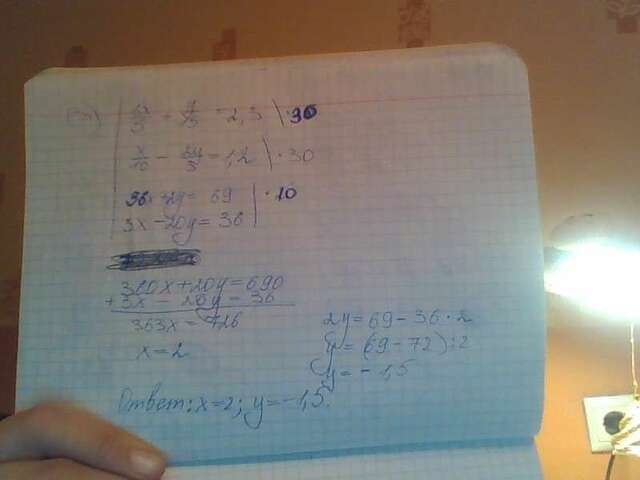 = 2,3 | · 30
x/10 - 2y/3 = 1,2 | · 30
36x + 2y = 69 | · 10
3x - 20y = 36
360x + 20y = 690
+ 3x - 20y = 36
363x = 726
x = 2
2y = 69 - 36 · 2
y = (69 - 72) : 2
y = - 1,5
Ответ: x = 2; y = -1,5.